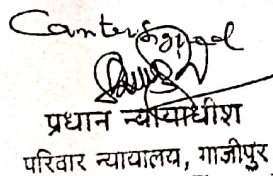 Countersigned
प्रधान न्यायाधीश
परिवार न्यायालय, गाजीपुर